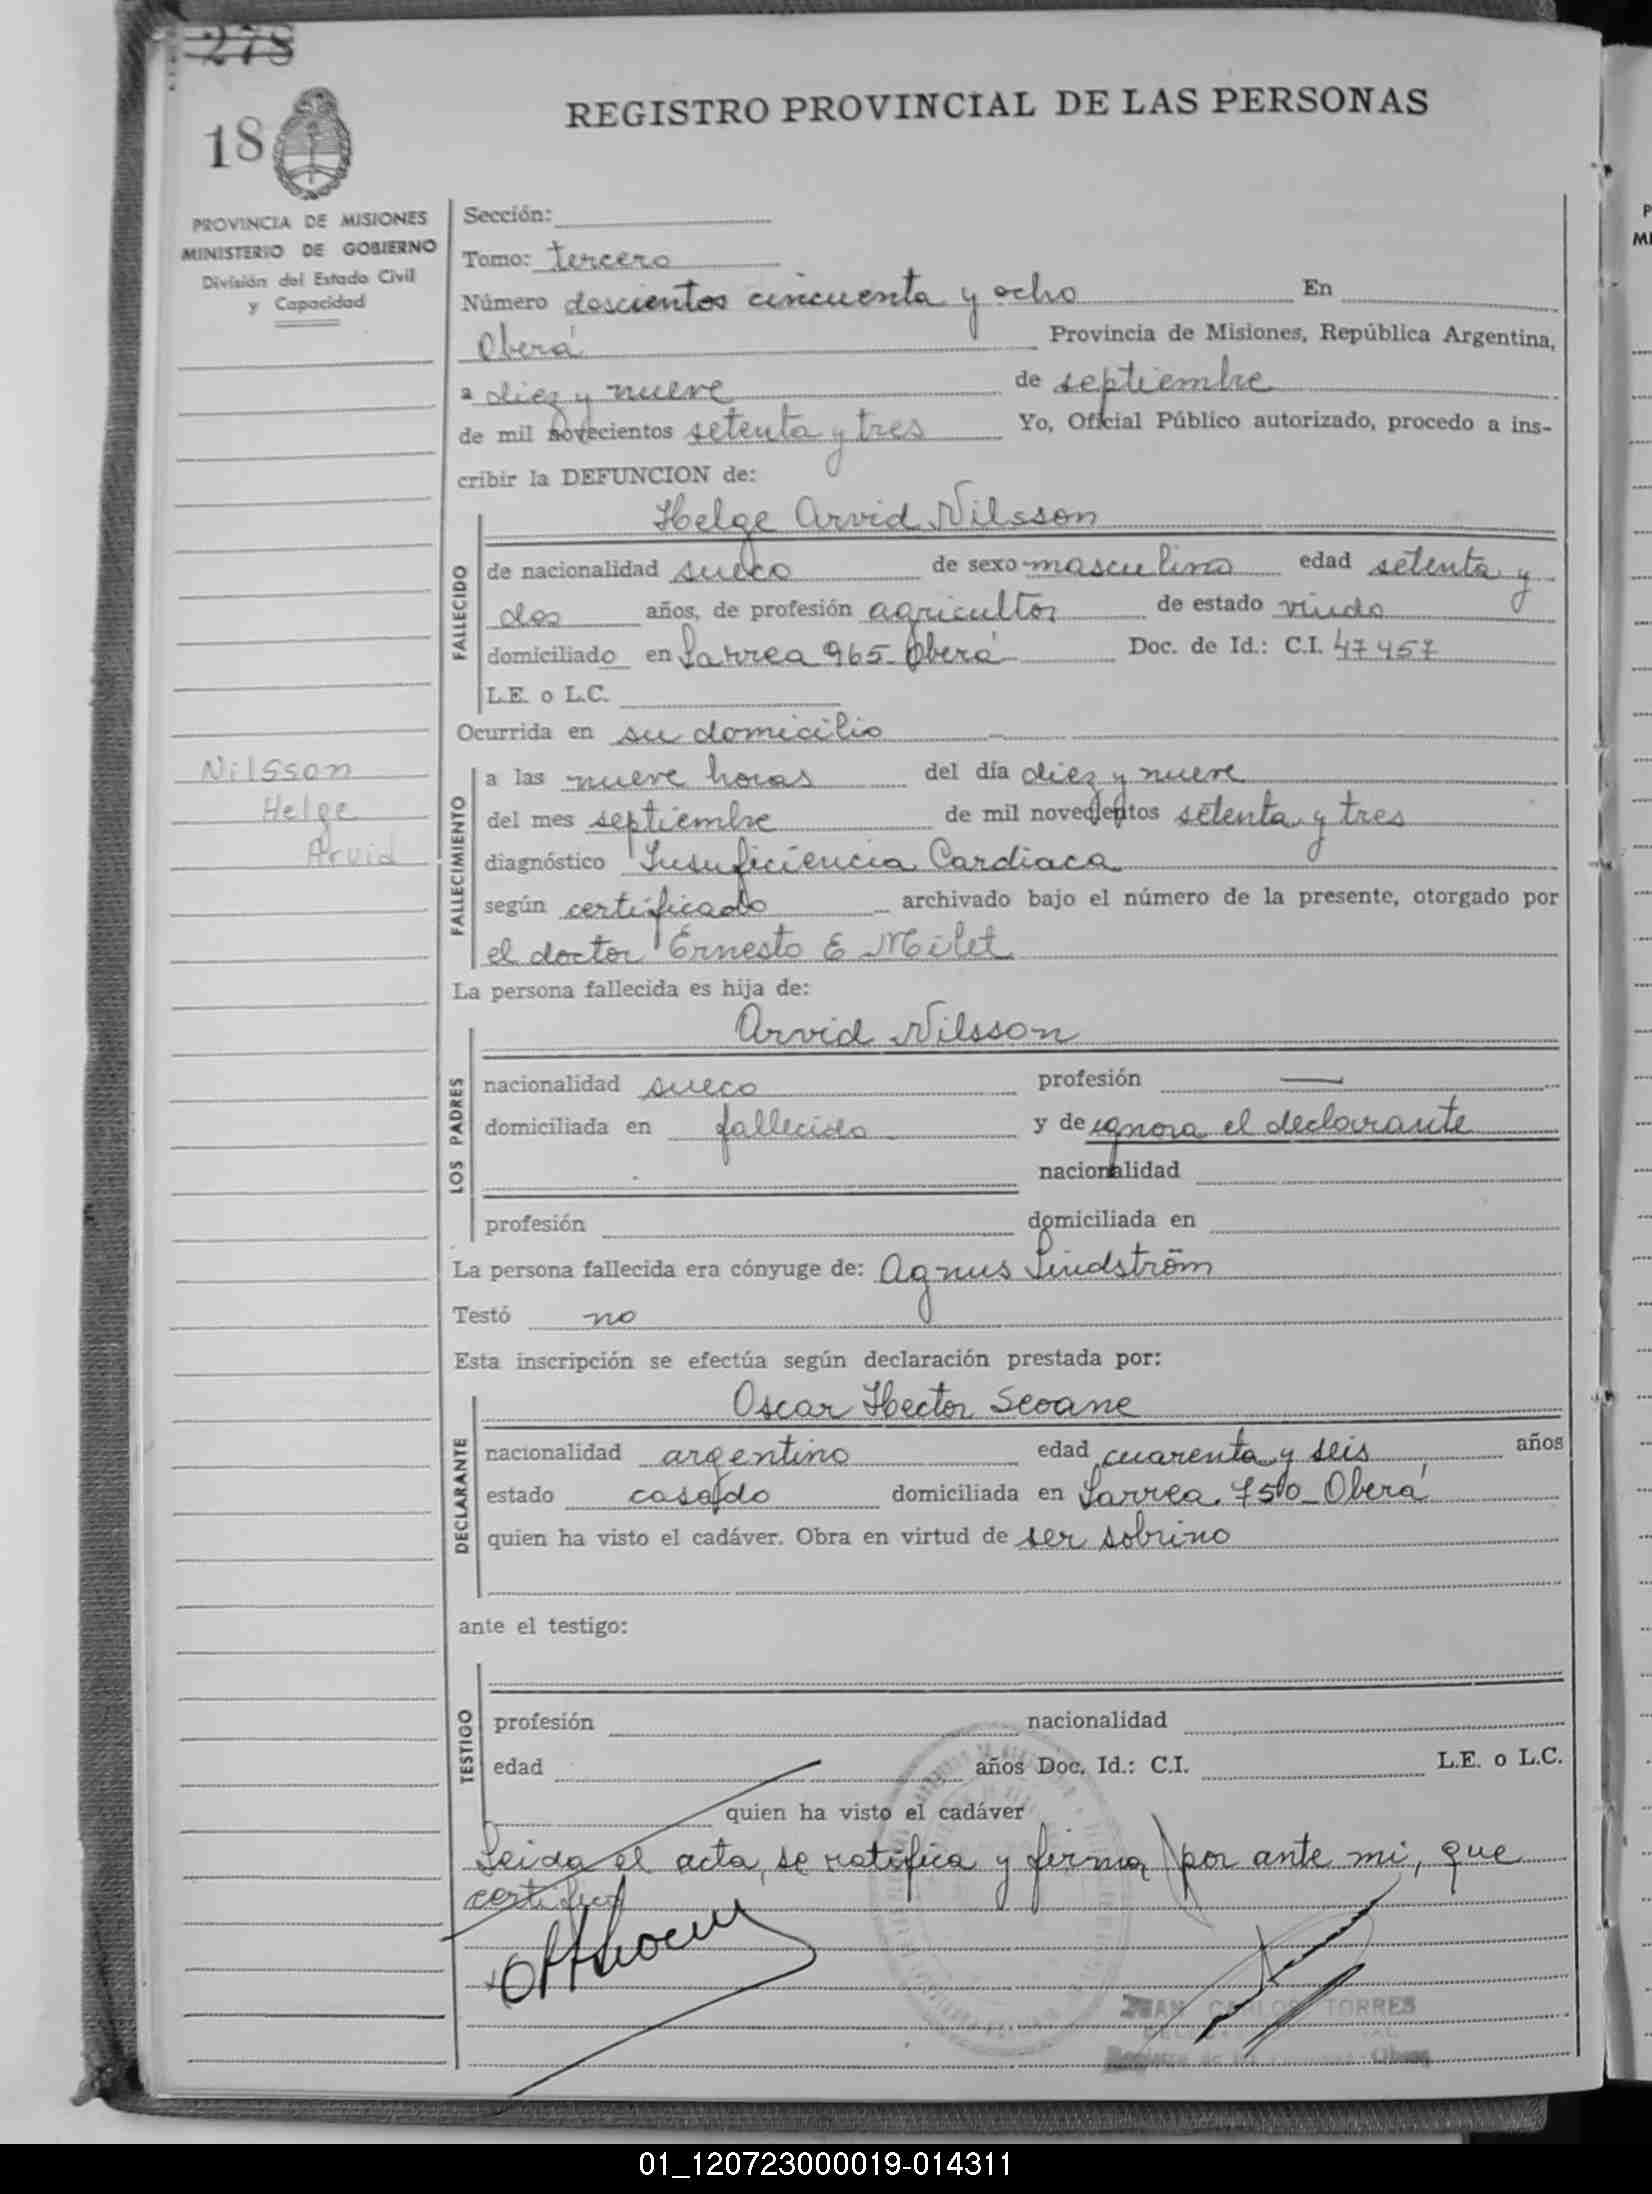 278
18
REGISTRO PROVINCIAL DE LAS PERSONAS
PROVINCIA DE MISIONES
MINISTERIO DE GOBIERNO
División del Estado Civil
y Capacidad
Sección:
Tomo: tercero
Número doscientos cincuenta y ocho En
Oberá Provincia de Misiones, República Argentina,
a diez y nueve de septiembre
de mil novecientos setenta y tres Yo, Oficial Público autorizado, procedo a ins-
cribir la DEFUNCION de:
Helge Arvid Nilsson
FALLECIDO
de nacionalidad sueco de sexo masculino edad setenta y
dos años, de profesión agricultor de estado viudo
domiciliado en Larrea 965 Oberá Doc. de Id.: C.I. 47457
L.E. o L.C.
Ocurrida en su domicilio
Nilsson
Helge
Arvid
FALLECIMIENTO
a las nueve horas del día diez y nueve
del mes septiembre de mil novecientos setenta y tres
diagnóstico Insuficiencia Cardiaca
según certificado archivado bajo el número de la presente, otorgado por
el doctor Ernesto E Milet
La persona fallecida es hija de:
Arvid Nilsson
LOS PADRES
nacionalidad sueco profesión —
domiciliada en fallecido y de ignora el declarante
nacionalidad
profesión domiciliada en
La persona fallecida era cónyuge de: Agnus Lindström
Testó no
Esta inscripción se efectúa según declaración prestada por:
Oscar Hector Seoane
DECLARANTE
nacionalidad argentino edad cuarenta y seis años
estado casado domiciliada en Larrea 750 Oberá
quien ha visto el cadáver. Obra en virtud de ser sobrino
ante el testigo:
TESTIGO
profesión nacionalidad
edad años Doc. Id.: C.I. L.E. o L.C.
quien ha visto el cadáver
Leida el acta, se ratifica y firma por ante mi, que
certifico
JUAN CARLOS TORRES
01_120723000019-014311